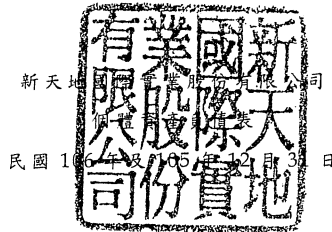 新天地國際實業股份有限公司
個體資產負債表
民國 106 年及 105 年 12 月 31 日
新天地
國際實
業股份
有限公司